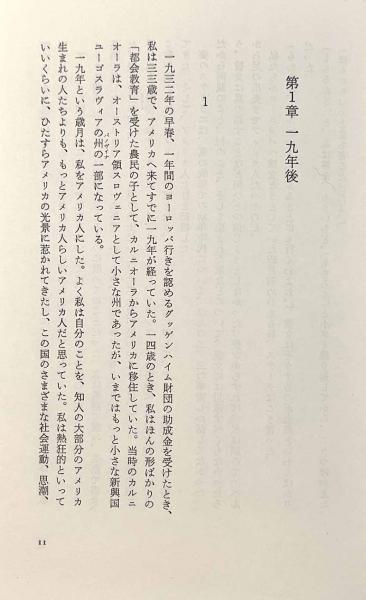 第1章 一九年後
1
一九三二年の早春、一年間のヨーロッパ行きを認めるグッゲンハイム財団の助成金を受けたとき、
私は三三歳で、アメリカへ来てすでに一九年が経っていた。一四歳のとき、私はほんの形ばかりの
「都会教育」を受けた農民の子として、カルニオーラからアメリカに移住していた。当時のカルニ
オーラは、オーストリア領スロヴェニアとして小さな州であったが、いまではもっと小さな新興国
ユーゴスラヴィアの州の一部になっている。
一九年という歳月は、私をアメリカ人にした。よく私は自分のことを、知人の大部分のアメリカ
生まれの人たちよりも、もっとアメリカ人らしいアメリカ人だと思っていた。私は熱狂的といって
いいくらいに、ひたすらアメリカの光景に惹かれてきたし、この国のさまざまな社会運動、思潮、
11